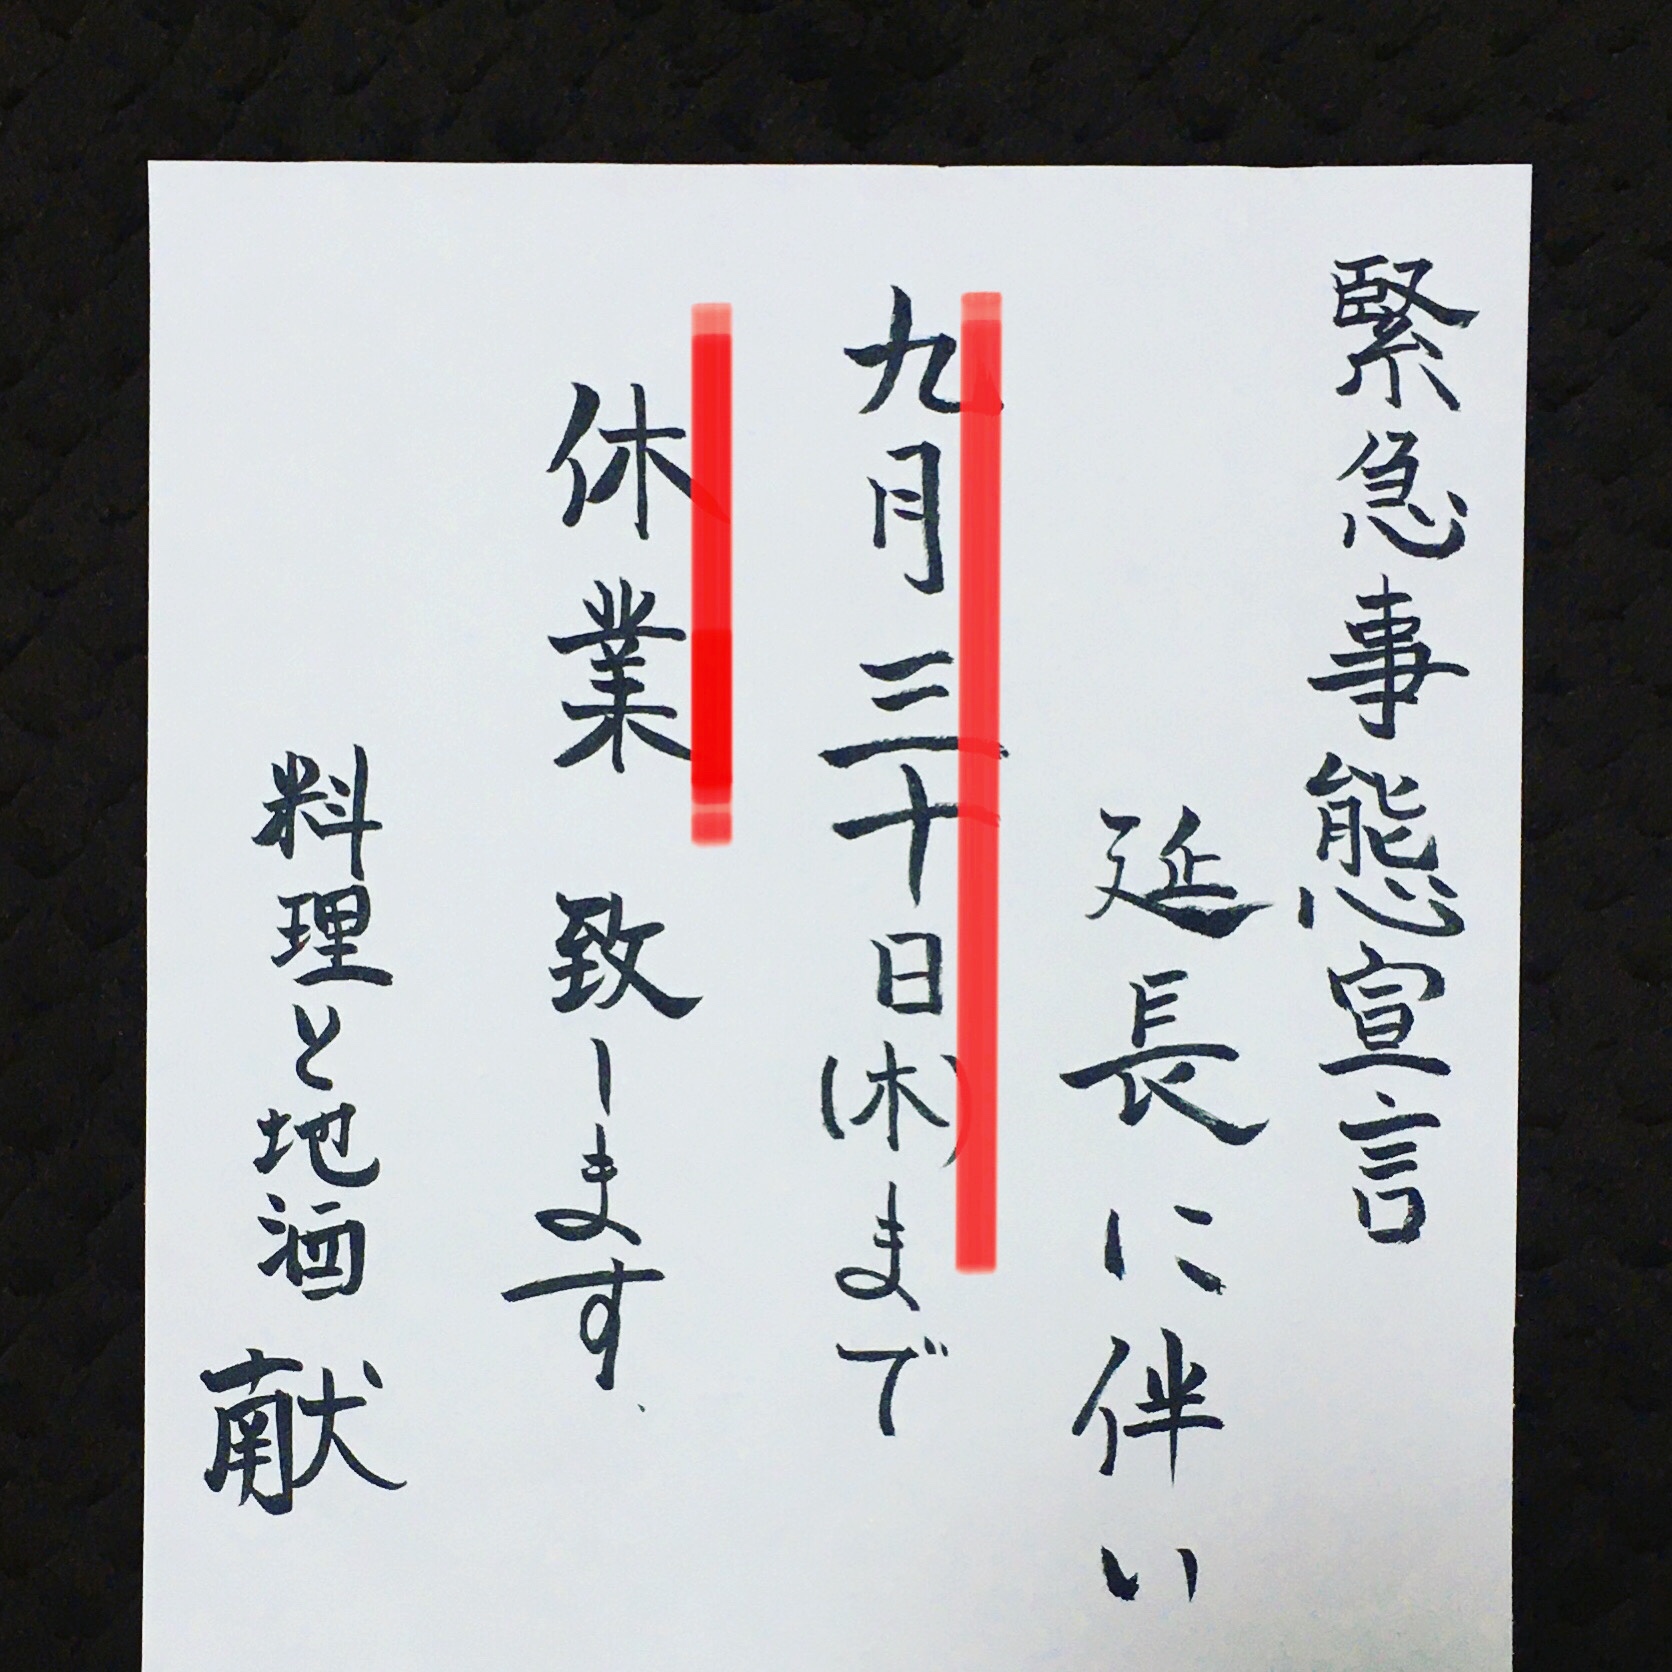 緊急事態宣言
延長に伴い
九月三十日(木)まで
休業致します
料理と地酒 献